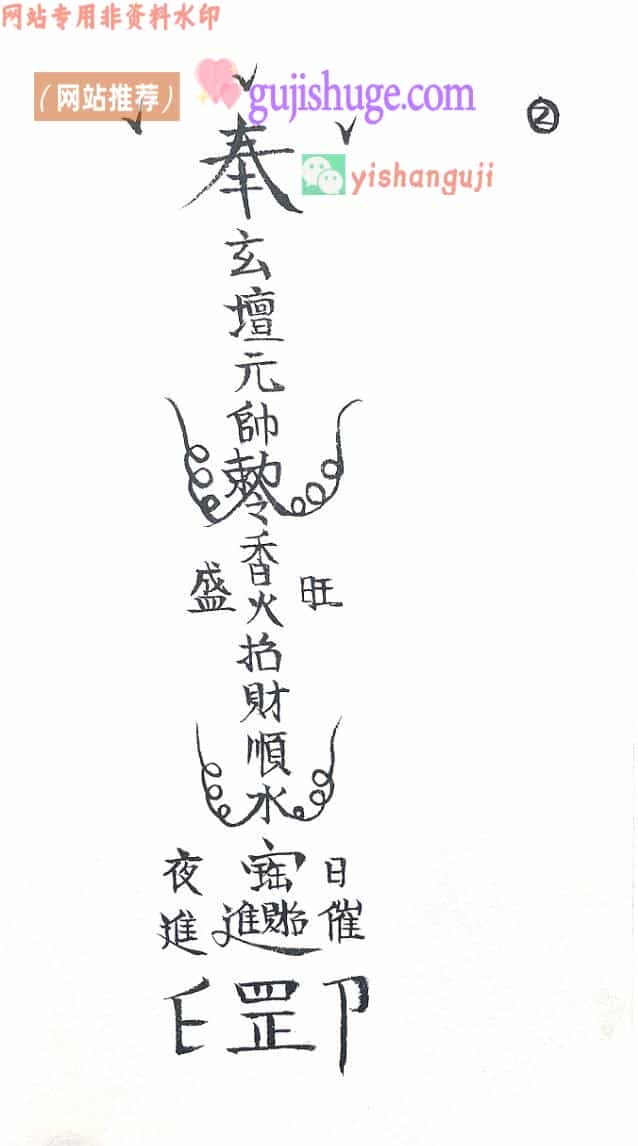 网站专用非资料水印
（网站推荐）
gujishuge.com
②
yishanguji
奉
玄壇元帥
勅令
香火招財順水
盛 旺
夜 日
進 催
進
罡